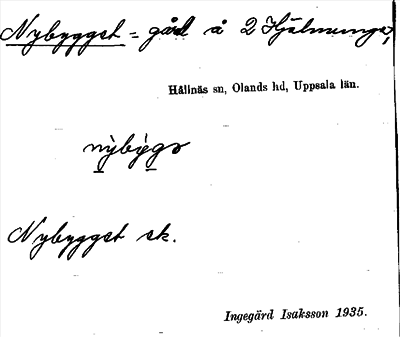 Nybygget = gård å 2 Hjälmunge,
Hållnäs sn, Olands hd, Uppsala län.
nỳbỳgə
Nybygget sk.
Ingegärd Isaksson 1935.